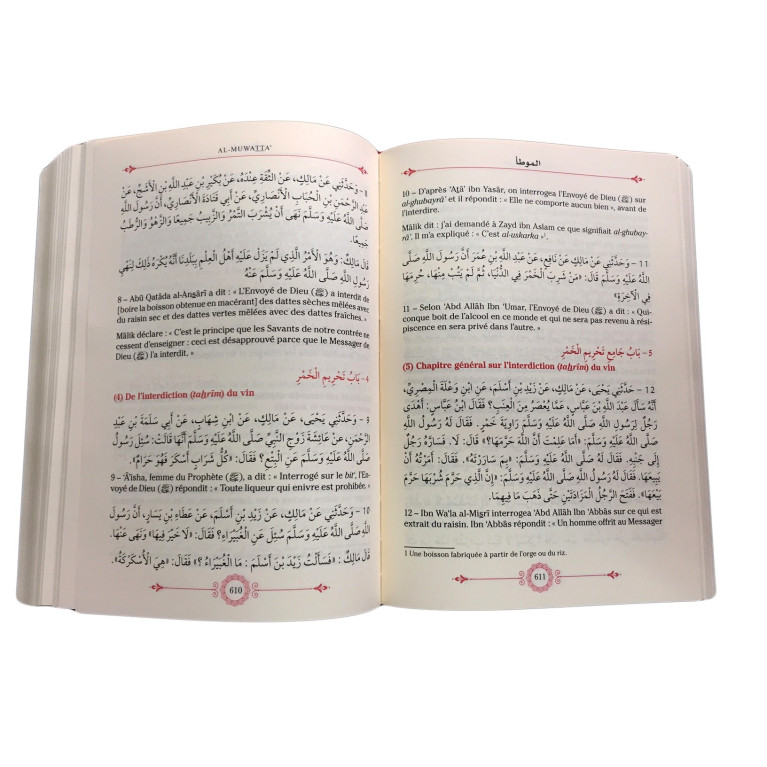 AL-MUWATTA'
8 – وَحَدَّثَنِي عَنْ مَالِكٍ، عَنْ الثِّقَةِ عِنْدَهُ، عَنْ بُكَيْرِ بْنِ عَبْدِ اللَّهِ بْنِ الْأَشَجِّ، عَنْ
عَبْدِ الرَّحْمَنِ بْنِ الْحُبَابِ الْأَنْصَارِيِّ، عَنْ أَبِي قَتَادَةَ الْأَنْصَارِيِّ، أَنَّ رَسُولَ اللَّهِ
صَلَّى اللَّهُ عَلَيْهِ وَسَلَّمَ نَهَى أَنْ يُشْرَبَ التَّمْرُ وَالزَّبِيبُ جَمِيعًا، وَالزَّهْوُ وَالرُّطَبُ
جَمِيعًا.
قَالَ مَالِكٌ: وَهُوَ الْأَمْرُ الَّذِي لَمْ يَزَلْ عَلَيْهِ أَهْلُ الْعِلْمِ بِبَلَدِنَا أَنَّهُ يُكْرَهُ ذَلِكَ لِنَهْيِ
رَسُولِ اللَّهِ صَلَّى اللَّهُ عَلَيْهِ وَسَلَّمَ عَنْهُ
8 – Abû Qatâda al-Ansârî a dit : « L'Envoyé de Dieu (ﷺ) a interdit de
[boire la boisson obtenue en macérant] des dattes sèches mêlées avec
du raisin sec et des dattes vertes mêlées avec des dattes fraîches. »
Mâlik déclare : « C'est le principe que les Savants de notre contrée ne
cessent d'enseigner : ceci est désapprouvé parce que le Messager de
Dieu (ﷺ) l'a interdit. »
4 – بَابُ تَحْرِيمِ الْخَمْرِ
(4) De l'interdiction (tahrîm) du vin
9 – وَحَدَّثَنِي يَحْيَى، عَنْ مَالِكٍ، عَنْ ابْنِ شِهَابٍ، عَنْ أَبِي سَلَمَةَ بْنِ عَبْدِ
الرَّحْمَنِ، عَنْ عَائِشَةَ زَوْجِ النَّبِيِّ صَلَّى اللَّهُ عَلَيْهِ وَسَلَّمَ أَنَّهَا قَالَتْ: سُئِلَ رَسُولُ
اللَّهِ صَلَّى اللَّهُ عَلَيْهِ وَسَلَّمَ عَنِ الْبِتْعِ؟ فَقَالَ: «كُلُّ شَرَابٍ أَسْكَرَ فَهُوَ حَرَامٌ».
9 – 'Âïsha, femme du Prophète (ﷺ), a dit : « Interrogé sur le bit', l'En-
voyé de Dieu (ﷺ) répondit : « Toute liqueur qui enivre est prohibée. »
10 – وَحَدَّثَنِي عَنْ مَالِكٍ، عَنْ زَيْدِ بْنِ أَسْلَمَ، عَنْ عَطَاءِ بْنِ يَسَارٍ، أَنَّ رَسُولَ
اللَّهِ صَلَّى اللَّهُ عَلَيْهِ وَسَلَّمَ سُئِلَ عَنِ الْغُبَيْرَاءِ؟ فَقَالَ: «لَا خَيْرَ فِيهَا» وَنَهَى عَنْهَا.
قَالَ مَالِكٌ : فَسَأَلْتُ زَيْدَ بْنَ أَسْلَمَ : مَا الْغُبَيْرَاءُ ؟ فَقَالَ: «هِيَ الْأُسْكَرْكَةُ».
610
الموطأ
10 – D'après 'Atâ' ibn Yasâr, on interrogea l'Envoyé de Dieu (ﷺ) sur
al-ghubayrâ' et il répondit : « Elle ne comporte aucun bien », avant de
l'interdire.
Mâlik dit : j'ai demandé à Zayd ibn Aslam ce que signifiait al-ghubay-
râ'. Il m'a expliqué : « C'est al-uskarka »¹.
11 – وَحَدَّثَنِي عَنْ مَالِكٍ عَنْ نَافِعٍ، عَنْ عَبْدِ اللَّهِ بْنِ عُمَرَ أَنَّ رَسُولَ اللَّهِ صَلَّى
اللَّهُ عَلَيْهِ وَسَلَّمَ قَالَ: «مَنْ شَرِبَ الْخَمْرَ فِي الدُّنْيَا، ثُمَّ لَمْ يَتُبْ مِنْهَا، حُرِمَهَا
فِي الْآخِرَةِ»
11 – Selon 'Abd Allâh Ibn 'Umar, l'Envoyé de Dieu (ﷺ) a dit : « Qui-
conque boit de l'alcool en ce monde et qui ne sera pas revenu à rési-
piscence en sera privé dans l'autre. »
5 – بَابُ جَامِعِ تَحْرِيمِ الْخَمْرِ
(5) Chapitre général sur l'interdiction (tahrîm) du vin
12 – حَدَّثَنِي يَحْيَى، عَنْ مَالِكٍ، عَنْ زَيْدِ بْنِ أَسْلَمَ، عَنِ ابْنِ وَعْلَةَ الْمِصْرِيِّ،
أَنَّهُ سَأَلَ عَبْدَ اللَّهِ بْنَ عَبَّاسٍ، عَمَّا يُعْصَرُ مِنَ الْعِنَبِ؟ فَقَالَ ابْنُ عَبَّاسٍ: أَهْدَى
رَجُلٌ لِرَسُولِ اللَّهِ صَلَّى اللَّهُ عَلَيْهِ وَسَلَّمَ رَاوِيَةَ خَمْرٍ. فَقَالَ لَهُ رَسُولُ اللَّهِ صَلَّى
اللَّهُ عَلَيْهِ وَسَلَّمَ: «أَمَا عَلِمْتَ أَنَّ اللَّهَ حَرَّمَهَا؟» قَالَ: لَا. فَسَارَّهُ رَجُلٌ
إِلَى جَنْبِهِ. فَقَالَ لَهُ رَسُولُ اللَّهِ صَلَّى اللَّهُ عَلَيْهِ وَسَلَّمَ: «بِمَ سَارَرْتَهُ». فَقَالَ: أَمَرْتُهُ أَنْ
يَبِيعَهَا. فَقَالَ لَهُ رَسُولُ اللَّهِ صَلَّى اللَّهُ عَلَيْهِ وَسَلَّمَ: «إِنَّ الَّذِي حَرَّمَ شُرْبَهَا حَرَّمَ
بَيْعَهَا». فَفَتَحَ الرَّجُلُ الْمَزَادَتَيْنِ حَتَّى ذَهَبَ مَا فِيهِمَا.
12 – Ibn Wa'la al-Misrî interrogea 'Abd Allâh Ibn 'Abbâs sur ce qui est
extrait du raisin. Ibn 'Abbâs répondit : « Un homme offrit au Messager
1 Une boisson fabriquée à partir de l'orge ou du riz.
611